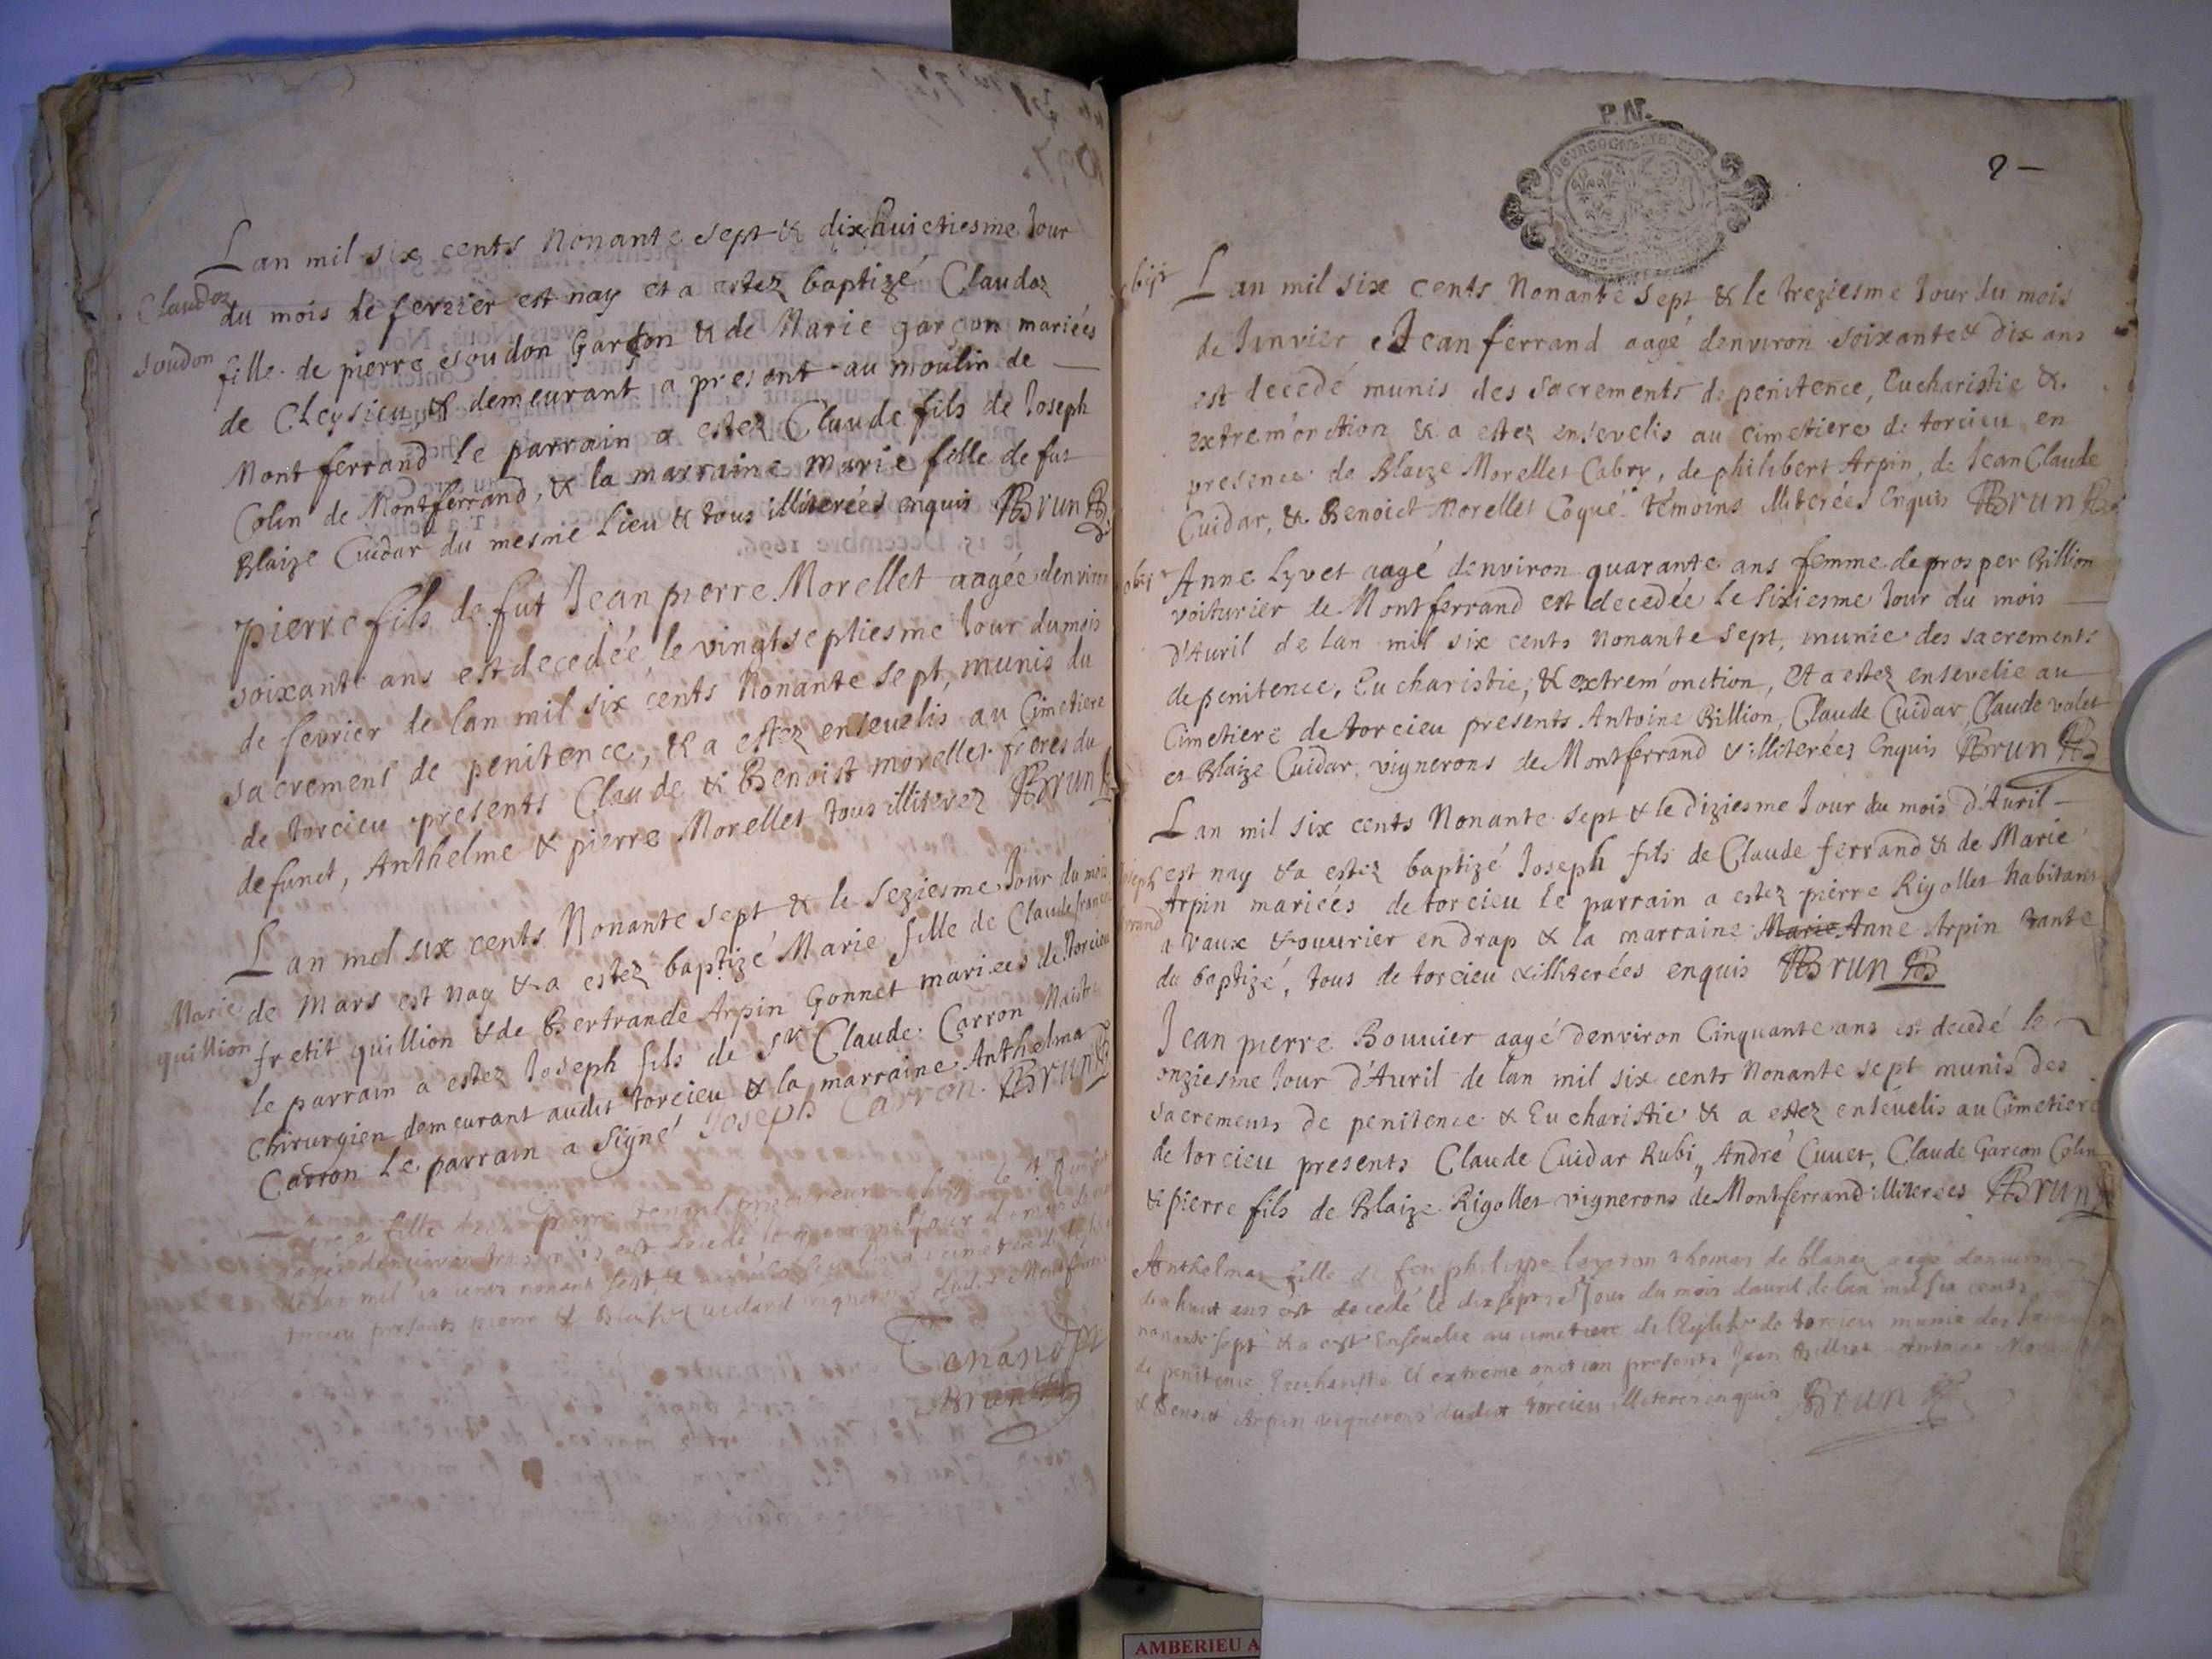 Lan mil six cents Nonante sept & dixhuictiesme Jour
Claudoz du mois de fevrier est nay et a estez baptizé Claudoz
soudon fille de pierre esoudon Garçon & de Marie garçon mariées
de Cleysieu & demeurant a present au moulin de
Montferrand le parrain a estez Claude fils de Joseph
Colin de Montferrand, & la marraine Marie fille de fut
Blaize Cuidar du mesme Lieu & tous illiterées enquis Brun
pierre fils de fut Jean pierre Morellet aagée denviron
soixante ans est decedée le vingtseptiesme Jour du mois
de fevrier de lan mil six cents Nonante sept, munis du
sacrement de penitence, & a estez ensevelis au Cimetiere
de torcieu presents Claude & Benoist morellet freres du
defunct, Anthelme & pierre Morellet tous illiterez Brun
Lan mil six cents Nonante sept & le seziesme Jour du mois
Marie de Mars est nay & a estez baptizé Marie fille de Claude francois
quillion fretit quillion & de Bertrande Arpin Gonnet mariees de torcieu
le parrain a estez Joseph fils de Sr Claude Carron Maistre
Chirurgien demeurant audit torcieu & la marraine Anthelma
Carron le parrain a Signé Joseph Carron. Brun
fille pierre
aagée denviron trois est decedé le Jour du mois de
de lan mil six cents nonant sept, & cimetiere
torcieu presents pierre & Blaise Cuidard vignerons dudit Montferrand
Tenand
Brun
P. N.
2
Lan mil six cents Nonante sept & le treziesme Jour du mois
de Janvier Jean ferrand aagé denviron soixante & dix ans
est decedé munis des sacrements de penitence, Eucharistie &
extrem'onction & a estez ensevelis au cimetiere de torcieu en
presence de Blaize Morellet Cabry, de philibert Arpin, de Jean Claude
Cuidar, & Benoict Morellet Coqué témoins illiterées Enquis Brun
Anne Lyvet aagé denviron quarante ans femme de prosper Billion
voiturier de Montferrand est decedée le sixiesme Jour du mois
d'Avril de lan mil six cents Nonante sept, munie des sacrements
de penitence, Eucharistie, & extrem'onction, et a estez ensevelie au
Cimetiere de torcieu presents Antoine Billion, Claude Cuidar, Claude valet
et Blaize Cuidar, vignerons de Montferrand & illiterées Enquis Brun
Lan mil six cents Nonante sept & le diziesme Jour du mois d'Avril
est nay & a estez baptizé Joseph fils de Claude ferrand & de Marie
Arpin mariées de torcieu le parrain a estez pierre Rigollet habitans
a vaux & ouvrier en drap & la marraine Marie Anne Arpin tante
du baptizé, tous de torcieu & illiterées enquis Brun
Jean pierre Bouvier aagé denviron Cinquante ans est decedé le
onziesme Jour d'Avril de lan mil six cents Nonante sept munis des
sacrements de penitence & Eucharistie & a estez ensevelis au Cimetiere
de torcieu presents Claude Cuidar Rubi, André Cuvet, Claude Garçon Colin
& pierre fils de Blaize Rigollet vignerons de Montferrand illiterées Brun
Anthelmaz fille de feu philippe thomas de blanaz aagé denviron
dix huict ans est decedé le dix septie Jour du mois davril de lan mil six cents
nonante sept & a esté Ensevelie au cimetiere de l'Eglise de torcieu munie des
de penitence Eucharistie & extreme onction presents Jean Antoine
& Benoit Arpin vignerons dudit torcieu illiteres enquis Brun
AMBERIEU A